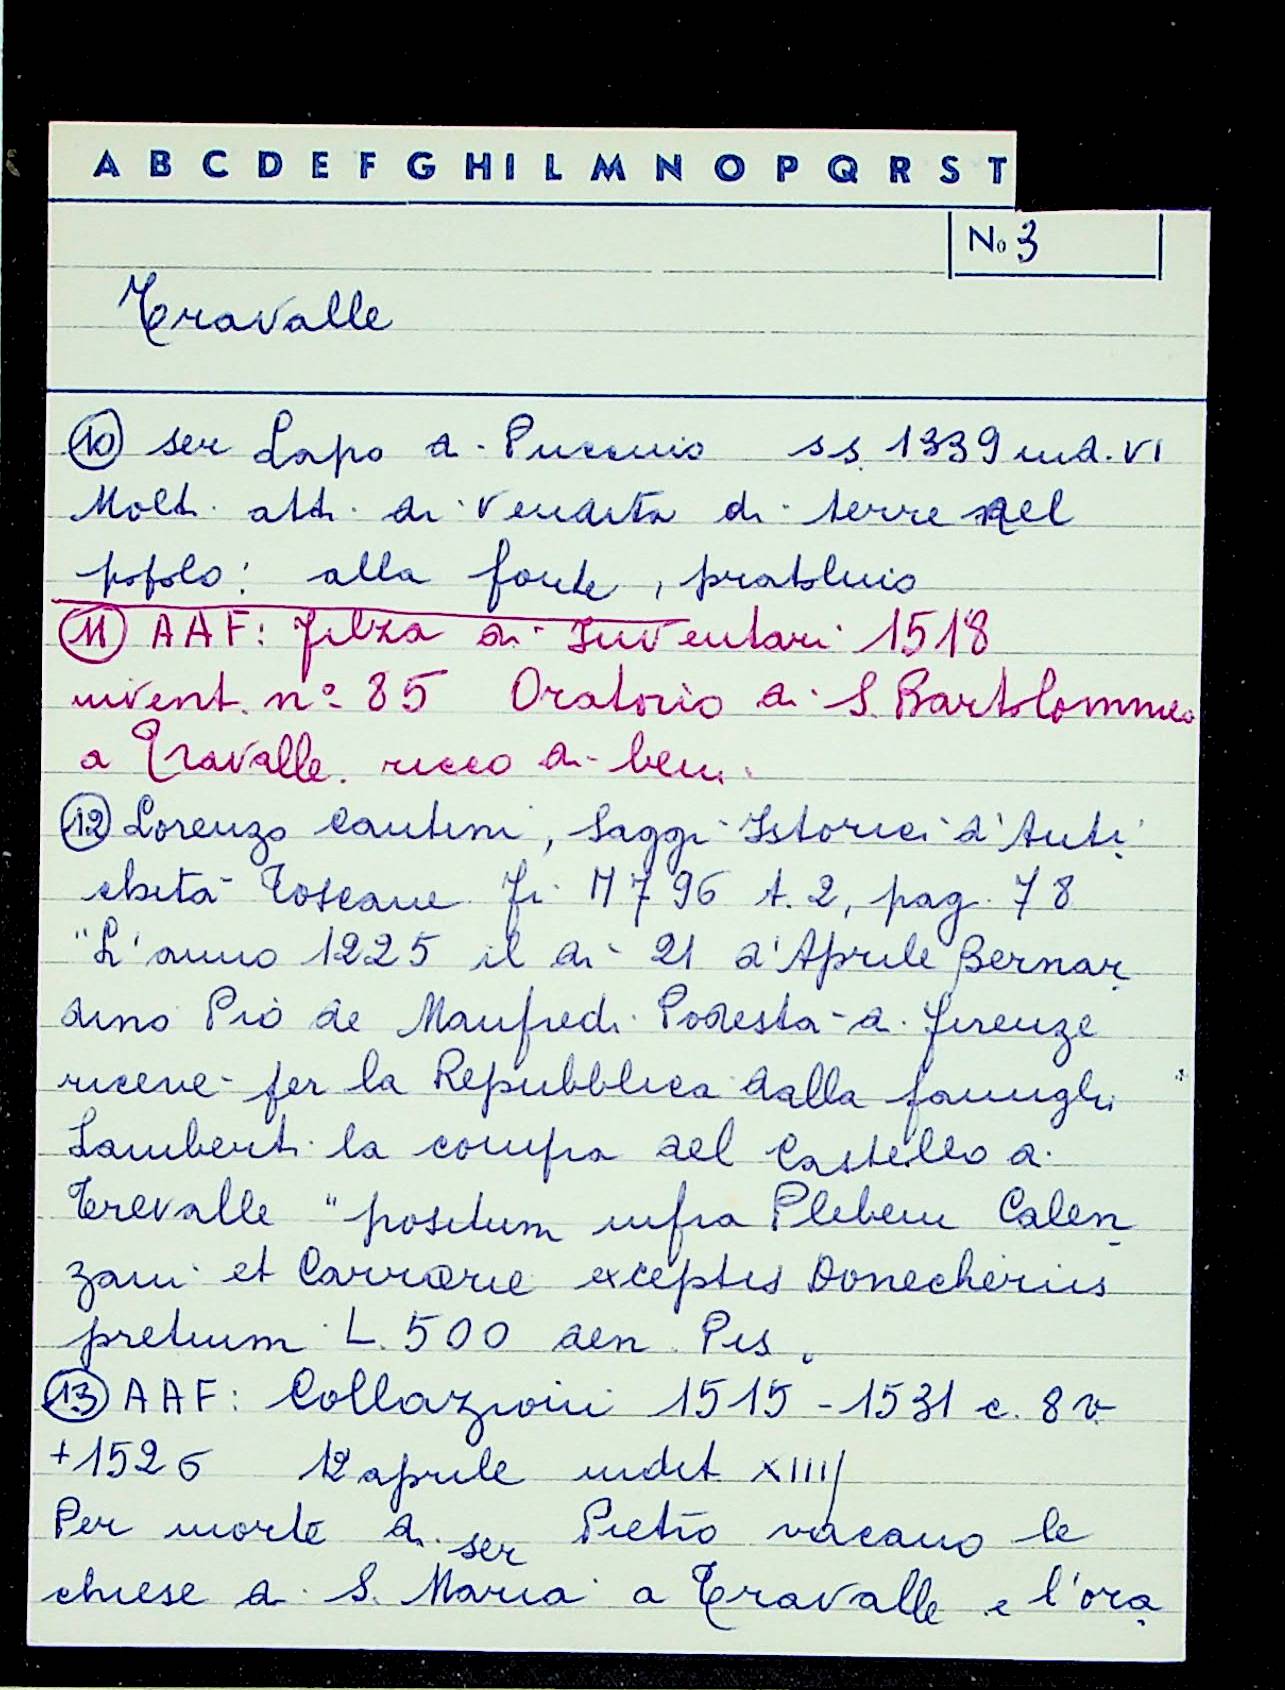 A B C D E F G H I L M N O P Q R S T
No 3
Travalle
(10) ser Lapo di Puccino ss. 1339 ind. VI
Molti atti di vendita di terre nel
popolo: alla fonte, pratolino
(11) AAF: Filza di Inventari 1518
invent. nº 85 Oratorio di S. Bartolommeo
a Travalle. ricco di beni.
(12) Lorenzo Cantini, Saggi Istorici d'Anti
chità Toscane. Fi. 1796 t. 2, pag. 78
"L'anno 1225 il dì 21 d'Aprile Bernar
dino Pio de Manfredi Podestà di Firenze
riceve per la Repubblica dalla famiglia
Lamberti la compra del Castello di
Trevalle "positum infra Plebem Calen
zani et Carrarie exceptis Donecheriis
pretium L. 500 den. Pis.
(13) AAF: Collazioni 1515-1531 c. 8v
+1526 12 aprile indit XIIII
Per morte di ser Pietro vacano le
chiese di S. Maria a Travalle e l'ora